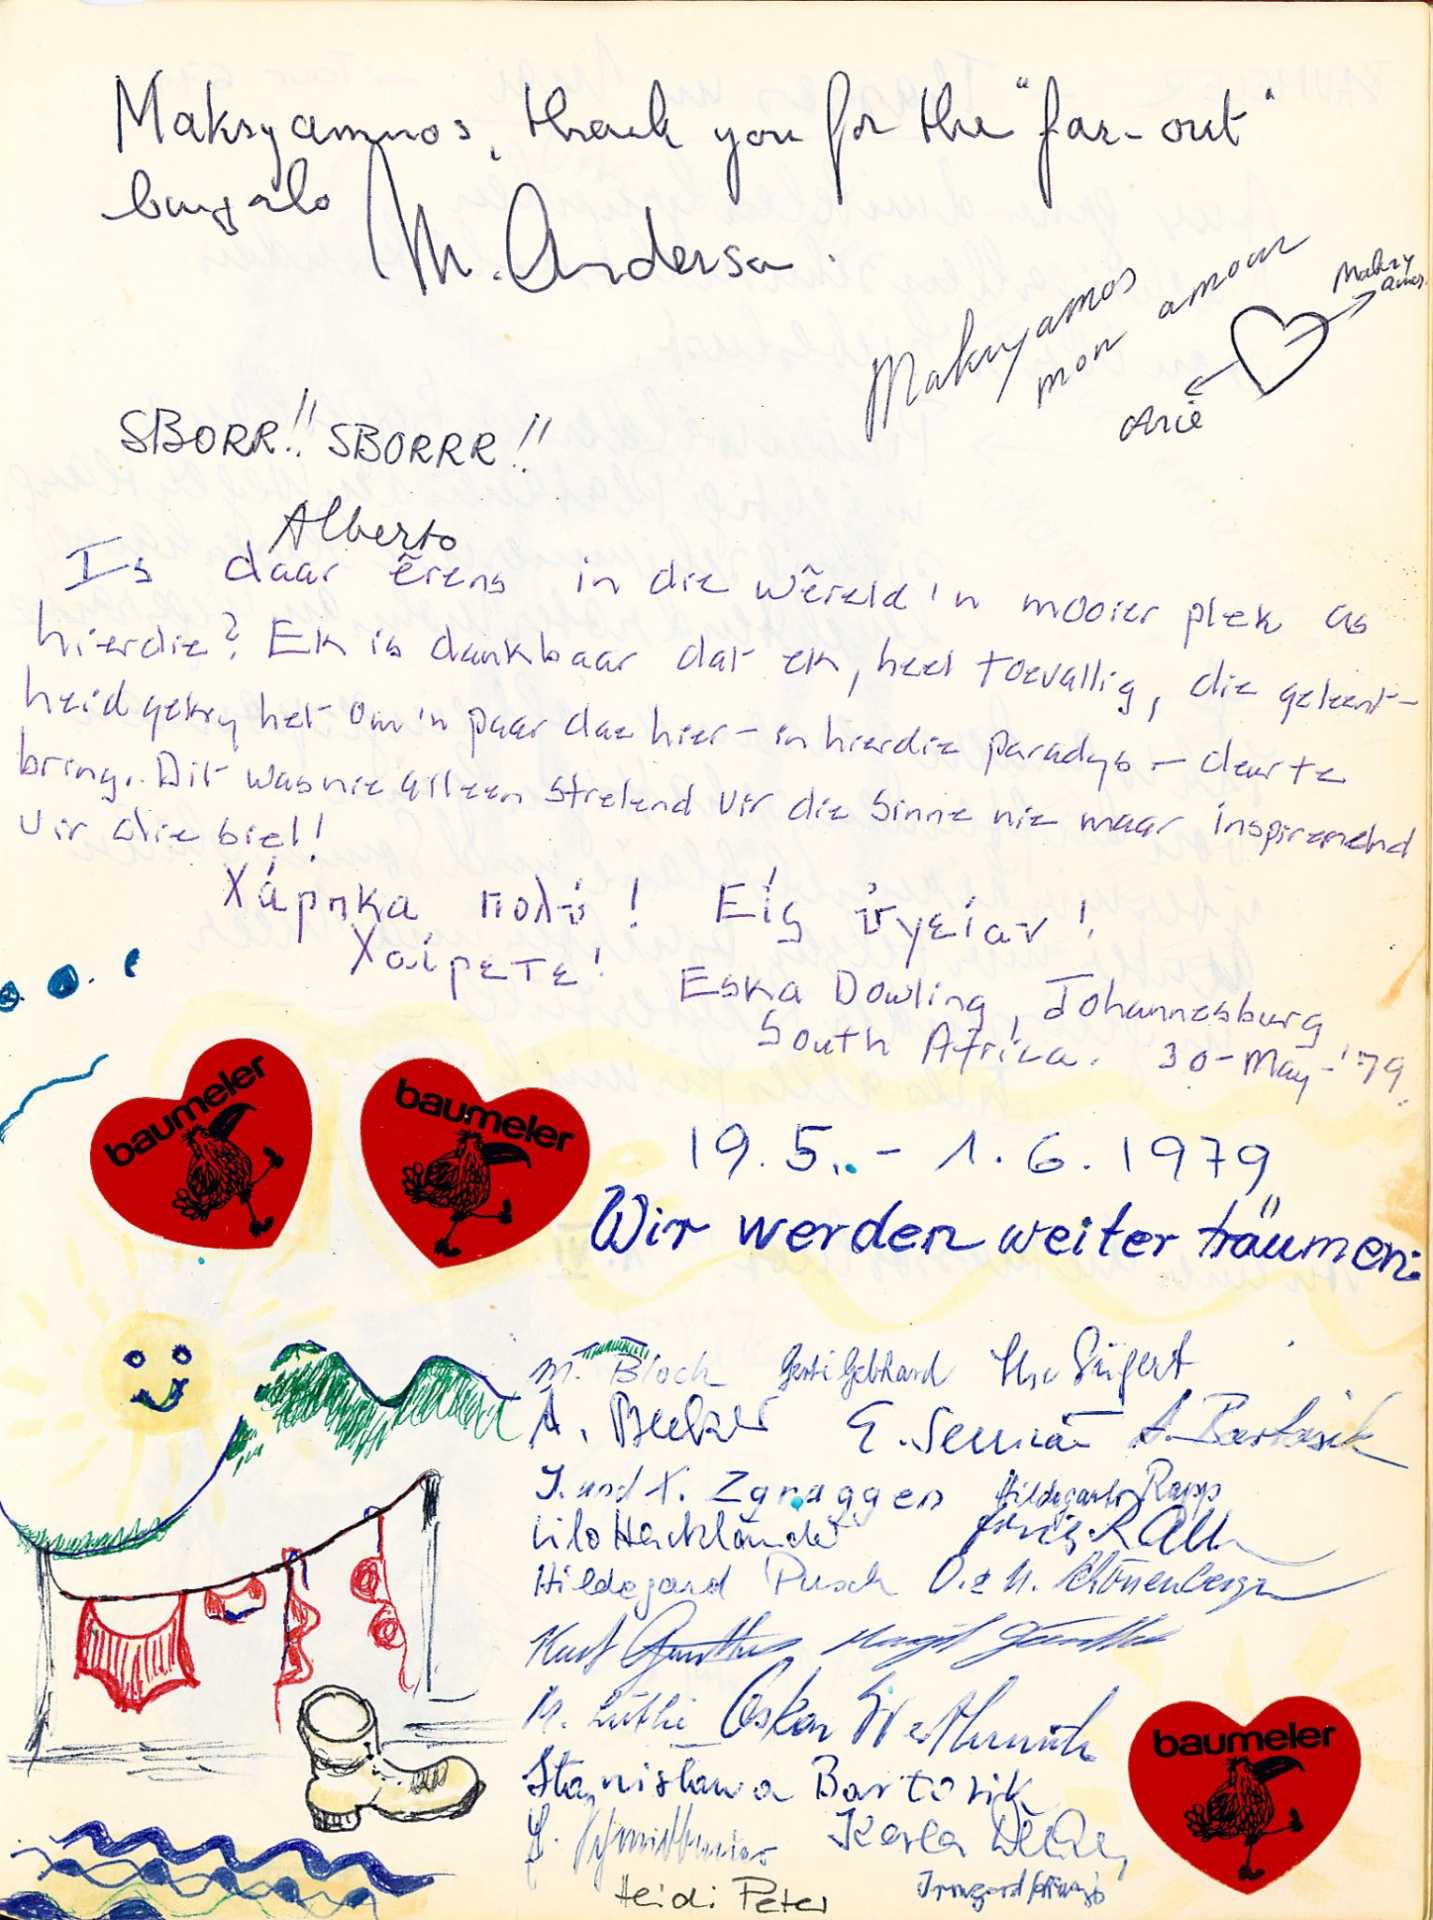 Makryammos, thank you for the "far-out"
bungalo M. Anderson.
Makryamos
mon amour
Makry
amos
Arie
SBORR!! SBORRR!!
Alberto
Is daar êrens in die wêreld 'n mooier plek as
hierdie? Ek is dankbaar dat ek, heel toevallig, die geleent-
heid gekry het om 'n paar dae hier - in hierdie paradys - deur te
bring. Dit was nie alleen strelend vir die sinne nie maar inspirerend
vir die siel!
Χάρηκα πολύ! Εἰς ὑγείαν!
Χαίρετε! Eska Dowling, Johannesburg
South Africa. 30-May-'79.
baumeler
baumeler
19.5. - 1.6.1979
Wir werden weiter träumen.
M. Bloch Gerti Gebhard Ilse
A. E. A. Bartosik
J. und X. Zgraggen Hildegard Rapp
Lilo Hackländer
Hildegard Pusch O. & M. Schönenberger
Kurt
M. Lüthi Oskar
Stanislawa Bartosik
Karla
Heidi Peter Irmgard
baumeler